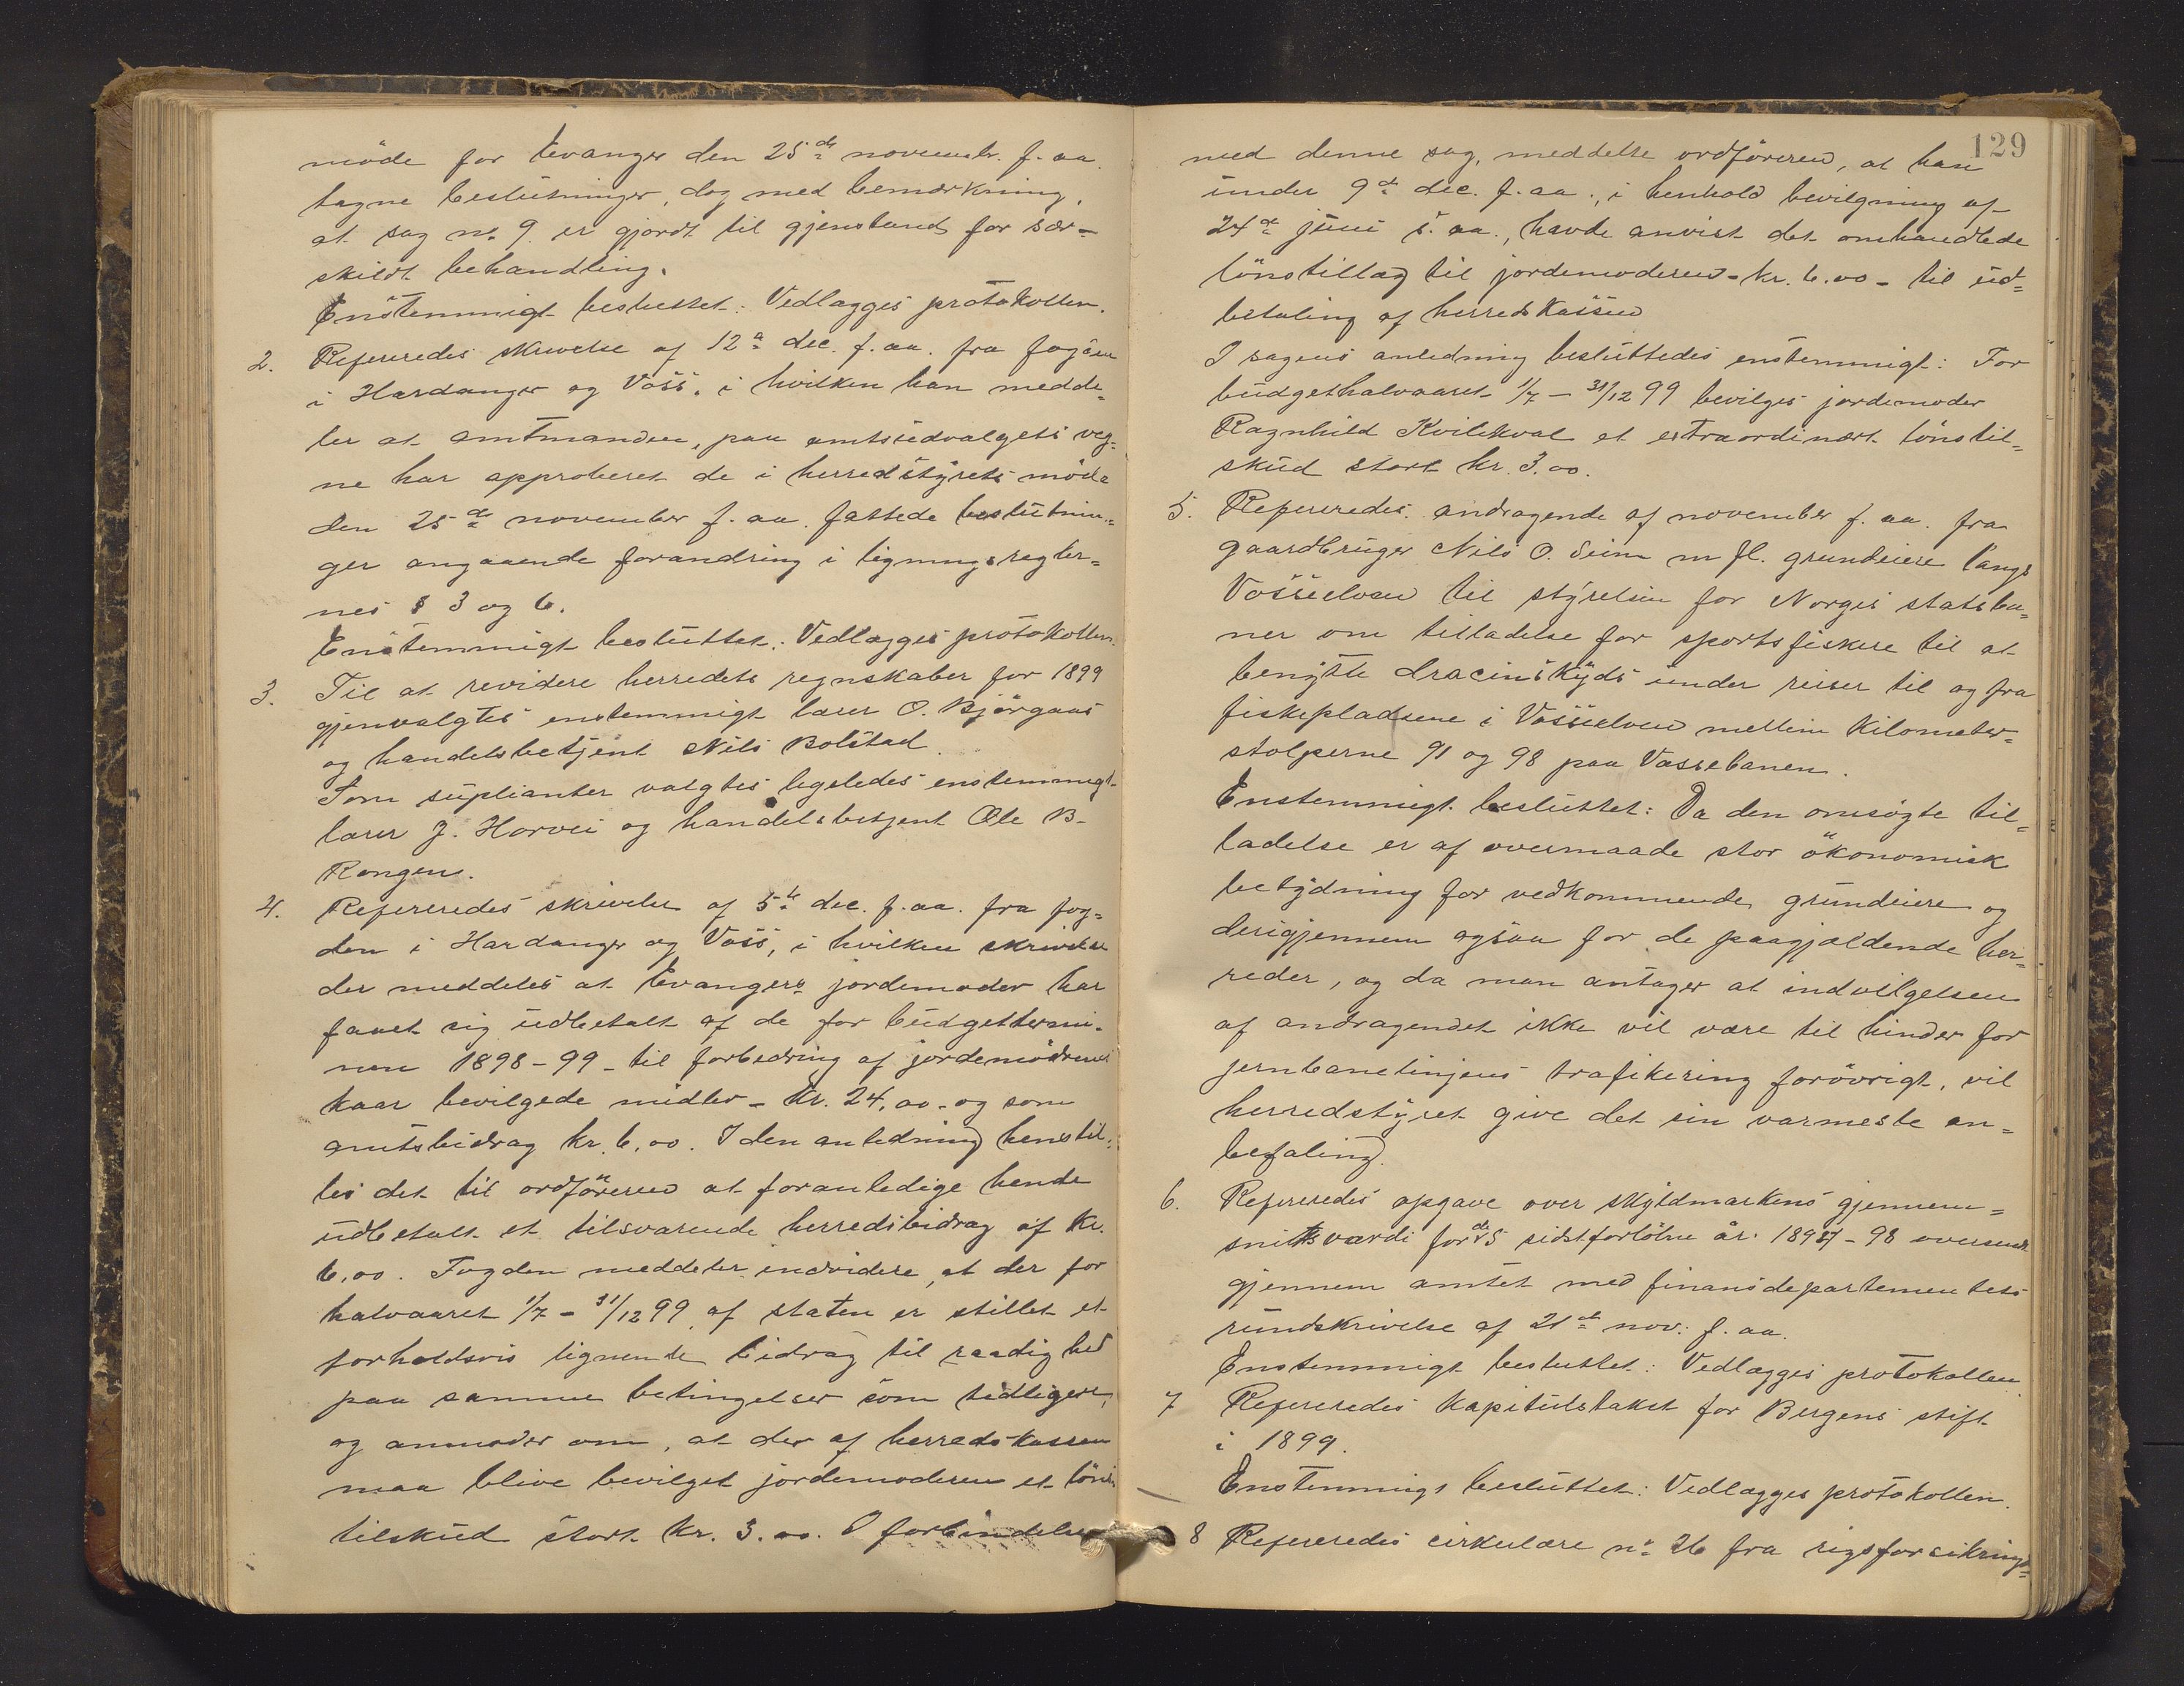 møde for Evanger den 25de novembr. f. aa.
tagne beslutninger, dog med bemærkning,
at sag no. 9 er gjordt til gjenstand for sær=
skildt behandling.
Enstemmigt besluttet: Vedlægges protokollen.
2. Refereredes skrivelse af 12te dec. f. aa. fra fogden
i Hardanger og Voss, i hvilken han medde=
ler at amtmanden, paa amtsudvalgets veg=
ne har approberet de i herredstyrets møde
den 25de november f. aa. fattede beslutnin=
ger angaaende forandring i ligningsregler=
nes § 3 og 6.
Enstemmigt besluttet: Vedlægges protokollen.
3. Til at revidere herredets regnskaber for 1899
gjenvalgtes enstemmigt lærer O. Bjørgaas
og handelsbetjent Nils Bolstad.
Som suplianter valgtes ligeledes enstemmigt
lærer J. Horvei og handelsbetjent Ole B.
Rongen.
4. Refereredes skrivelse af 5te dec. f. aa. fra fog=
den i Hardanger og Voss, i hvilken skrivelse
der meddeles at Evangers jordemoder har
faaet sig udbetalt af de for budgettermi=
nen 1898-99 - til forbedring af jordemødrenes
kaar bevilgede midler - kr. 24,00 - og som
amtsbidrag kr. 6,00. I den anledning henstil=
les det til ordføreren at foranledige hende
udbetalt et tilsvarende herredsbidrag af kr.
6,00. Fogden meddeler endvidere, at der for
halvaaret 1/7 - 31/12 99 af staten er stillet et
forholdsvis lignende bidrag til raadighed
paa samme betingelser som tidligere,
og anmoder om, at der af herredskassen
maa blive bevilget jordemoderen et løns=
tilskud stort kr. 3.00. I forbindelse
129
med denne sag, meddelte ordføreren, at han
under 9de dec. f. aa., i henhold bevilgning af
24de juni s. aa., havde anvist det omhandlede
lønstillæg til jordemoderen - kr. 6.00 - til ud=
betaling af herredskassen
I sagens anledning besluttedes enstemmigt: For
budgethalvaaret 1/7 - 31/12 99 bevilges jordemoder
Ragnhild Kvilekval et extraordinært lønstil=
skud stort kr. 3.00.
5. Refereredes andragende af november f. aa. fra
gaardbruger Nils O. Seim m fl. grundeiere langs
Vosseelven til styrelsen for Norges statsba=
ner om tilladelse for sportsfiskere til at
benytte dracinskyds under reiser til og fra
fiskepladsene i Vosseelven mellem kilometer=
stolperne 91 og 98 paa Vossebanen.
Enstemmigt besluttet: Da den omsøgte til=
ladelse er af overmaade stor økonomisk
betydning for vedkommende grundeiere og
derigjennem ogsaa for de paagjældende her=
reder, og da man antager at indvilgelsen
af andragendet ikke vil være til hinder for
jernbanelinjens trafikering forøvrigt, vil
herredstyret give det sin varmeste an=
befaling.
6. Refereredes opgave over skyldmarkens gjennem=
snitsværdi for de 5 sidstforløbne år: 1897-98 oversendt
gjennem amtet med finansdepartementets
rundskrivelse af 21de nov. f. aa.
Enstemmigt besluttet: Vedlægges protokollen
7 Refereredes kapitulstakst for Bergens stift
i 1899.
Enstemmigt besluttet: Vedlægges protokollen.
8 Refereredes cirkulære no 26 fra rigsforsikrings=